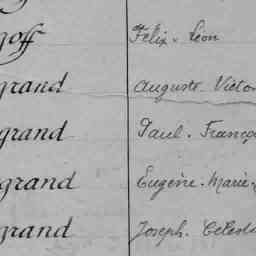 goff Félix. Léon
grand Auguste Victor
grand Paul. Franço
grand Eugène. Marie.
grand Joseph. Célest